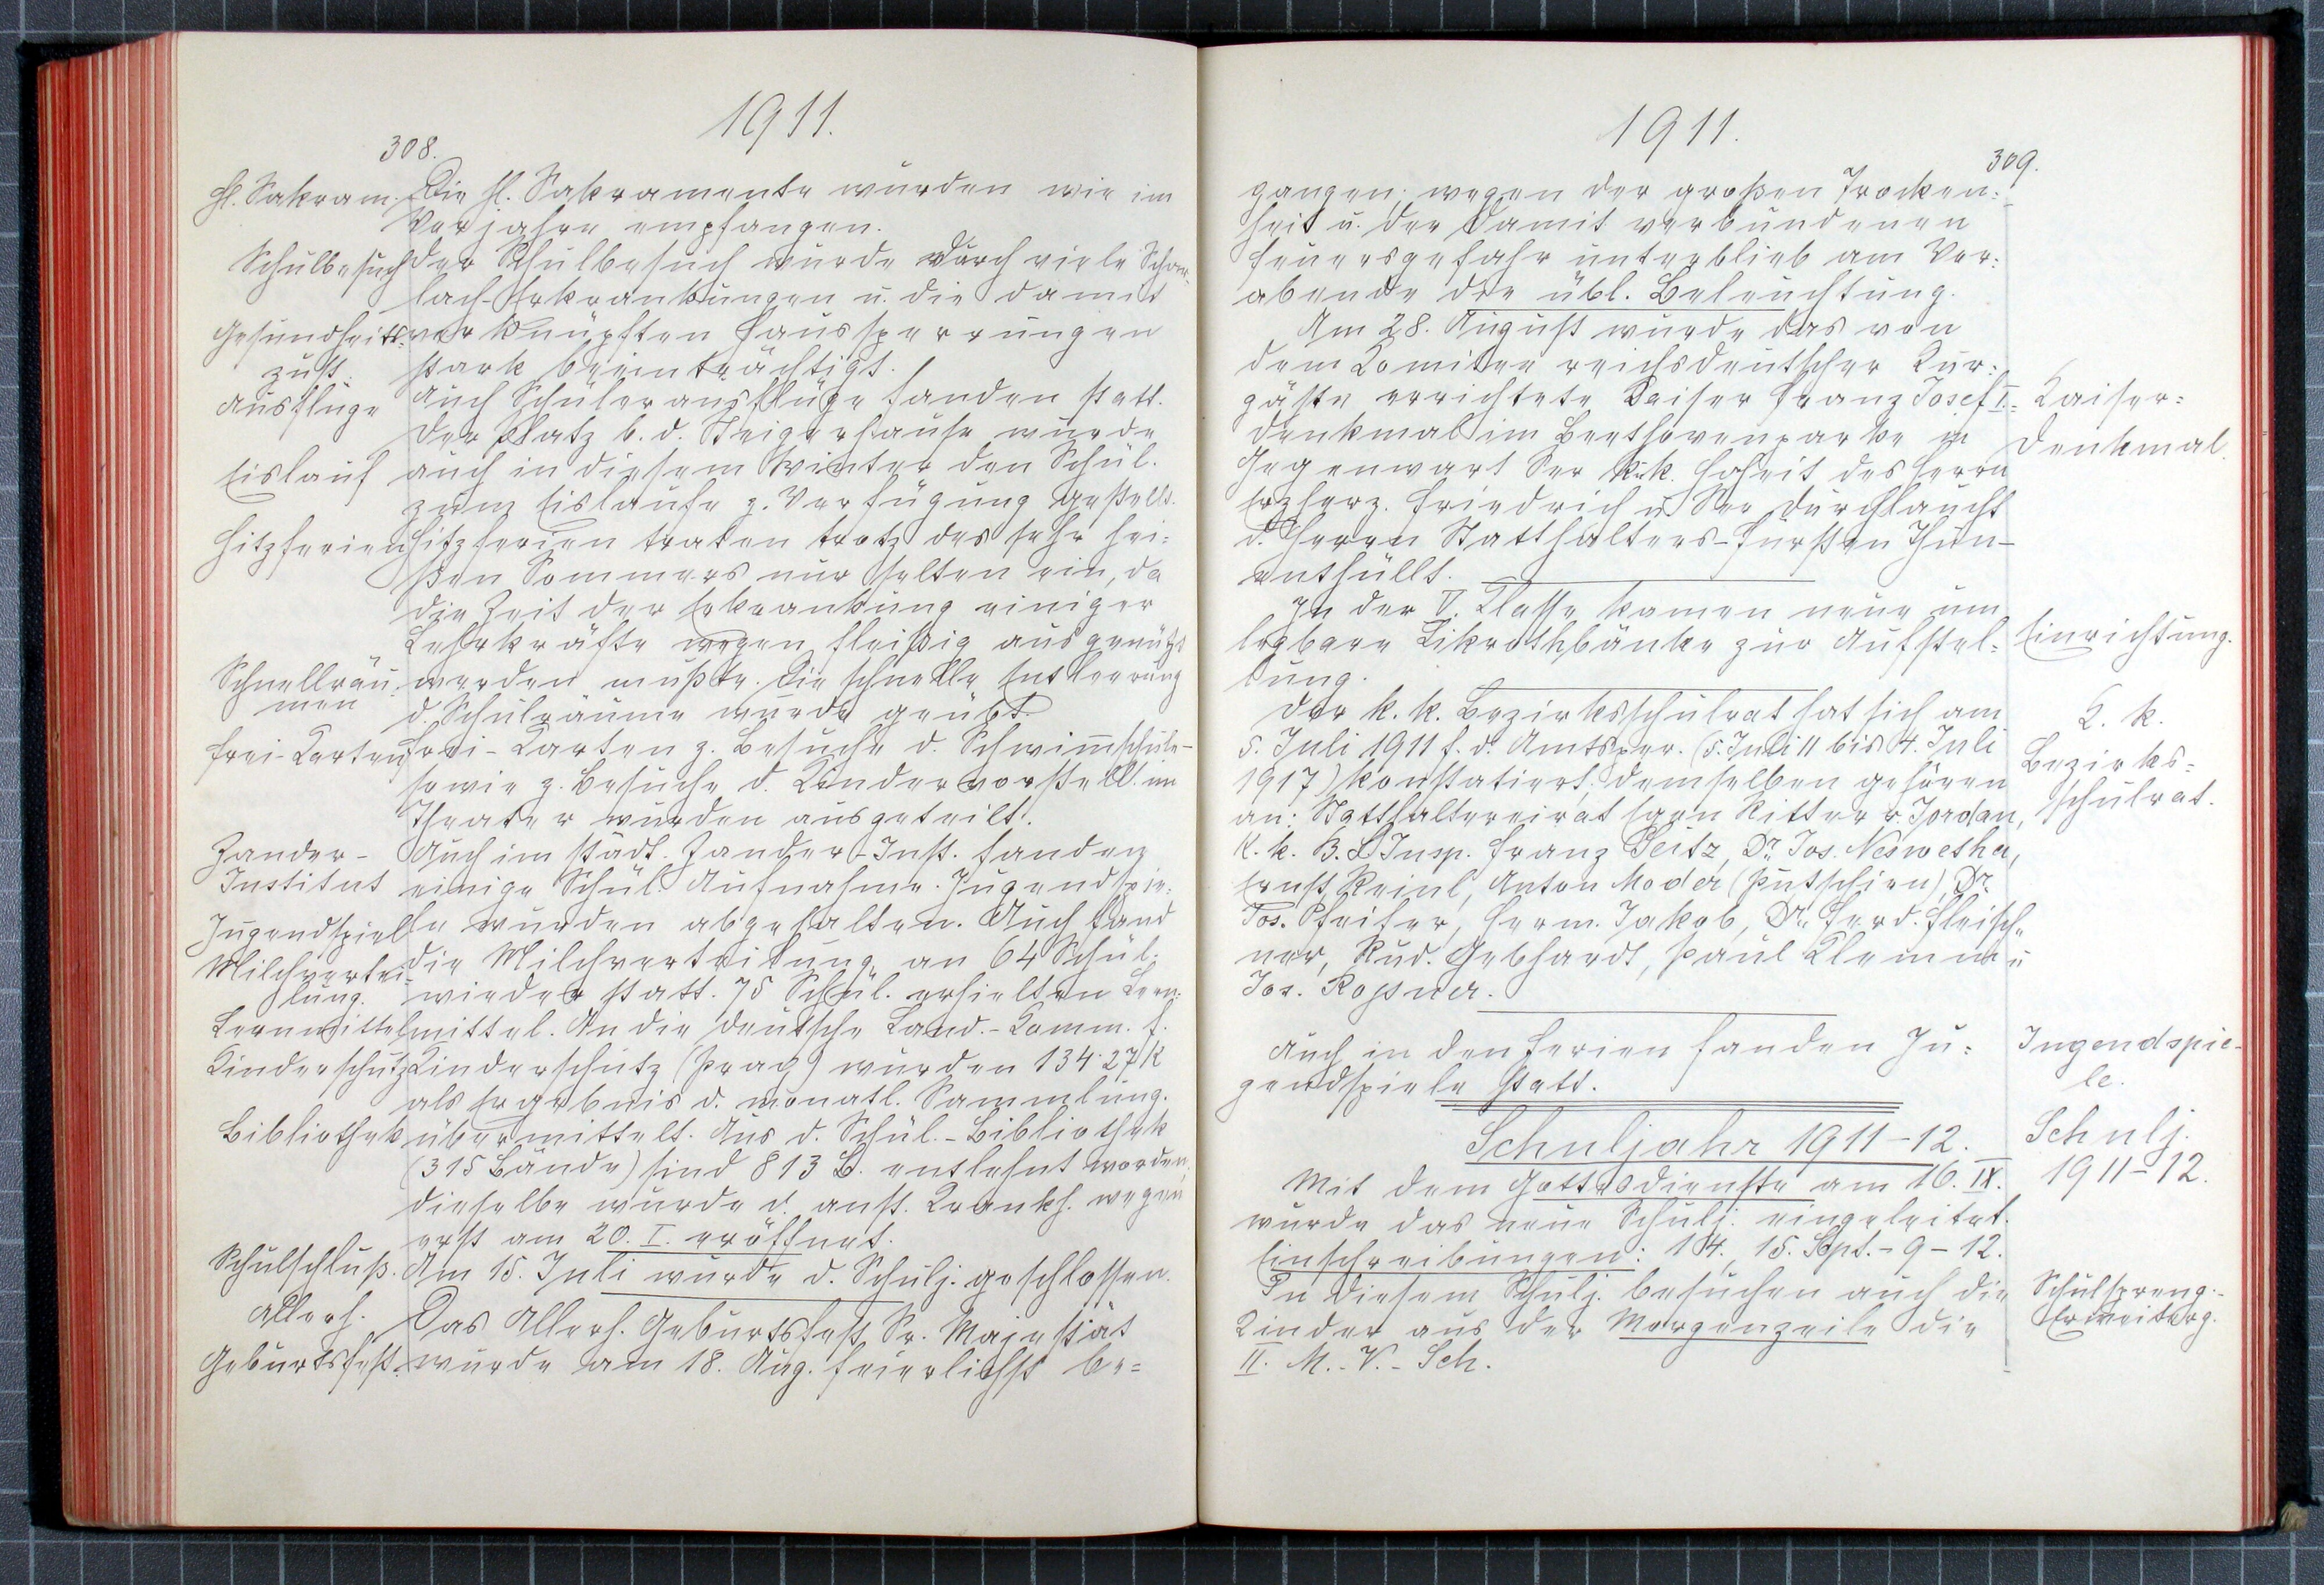 1911.
308.
Hl. Sakram. Die hl. Sakramente wurden wie im
Vorjahre empfangen.
Schulbesuch Der Schulbesuch wurde durch viele Schar-
lach-Erkrankungen u. die damit
Gesundheits- verknüpften Haussperrungen
zust. stark beeinträchtigt.
Ausflüge Auch Schülerausflüge fanden statt.
Der Platz b. d. Steigerhause wurde
Eislauf auch in diesem Winter den Schül.
zum Eislaufe z. Verfügung gestellt.
Hitzferien Hitzferien traten trotz des sehr hei-
ßen Sommers nur selten ein, da
die Zeit der Erkrankung einiger
Lehrkräfte wegen fleißig ausgenützt
Schnellräu- werden mußte. Die schnelle Entleerung
men d. Schulräume wurde geübt.
Frei-Karten Frei-Karten z. Besuche d. Schwimschule-
sowie z. Besuche d. Kindervorstell. im
Theater wurden ausgeteilt.
Zander- Auch im städt. Zander-Inst. fanden
Institut einige Schül. Aufnahme. Jugendspie-
Jugendspiele le wurden abgehalten. Auch fand
Milchvertei- die Milchverteilung an 64 Schül.
lung. wieder statt. 75 Schül. erhielten Lern-
Lernmittel mittel. An die deutsche Land.-Komm. f.
Kinderschutz Kinderschutz (Prag) wurden 134·27 K
als Ergebnis d. monatl. Sammlung.
Bibliothek übermittelt. Aus d. Schül.-Bibliothek
(315 Bände) sind 813 B. entlehnt worden.
dieselbe wurde d. anst. Krankh. wegen
erst am 20. I. eröffnet.
Schulschluß. Am 15. Juli wurde d. Schulj. geschlossen.
Allerh. Das Allerh. Geburtsfest Sr. Majestät
Geburtsfest. wurde am 18. Aug. feierlichst be=
1911.
309.
gangen; wegen der großen Trocken=
heit u. der damit verbundenen
Feuersgefahr unterblieb am Vor=
abende die übl. Beleuchtung.
Am 28. August wurde das von
dem Komitee reichsdeutscher Kur=
gäste errichtete Kaiser Franz Josef I.= Kaiser=
denkmal im Beethovenparke in Denkmal.
Gegenwart Ser k. k. Hoheit des Herrn
Erzherz. Friedrich u. Sr Durchlaucht
d. Herrn Statthalters-Fürsten Thun-
enthüllt.
In der V. Klasse kamen neue um
legbare Likrothbänke zur Aufstel= Einrichtung.
lung.
Der k. k. Bezirksschulrat hat sich am K. k.
5. Juli 1911 f. d. Amtsper. (5. Juli 11 bis 4. Juli Bezirks=
1917) konstatiert; demselben gehören schulrat.
an: Statthaltereirat Egon Ritter v. Jordan,
k. k. B. S. Insp. Franz Seitz, Dr. Jos. Neswetha,
Ernst Reinl, Anton Moder (Putschirn), Dr.
Jos. Pfeifer, Herm. Jakob, Dr. Ferd. Fleisch-
ner, Rud. Gebhardt, Paul Klemm u
Jos. Roßner.
Auch in den Ferien fanden Ju= Jugendspie-
gendspiele statt. le.
Schuljahr 1911-12. Schulj.
Mit dem Gottesdienste am 16. IX. 1911-12.
wurde das neue Schulj. eingeleitet.
Einschreibungen: 14., 15. Sept.-9-12.
In diesem Schulj. besuchen auch die Schulspreng.-
Kinder aus der Morgenzeile die Erweiterg.
II. M.-V.-Sch.